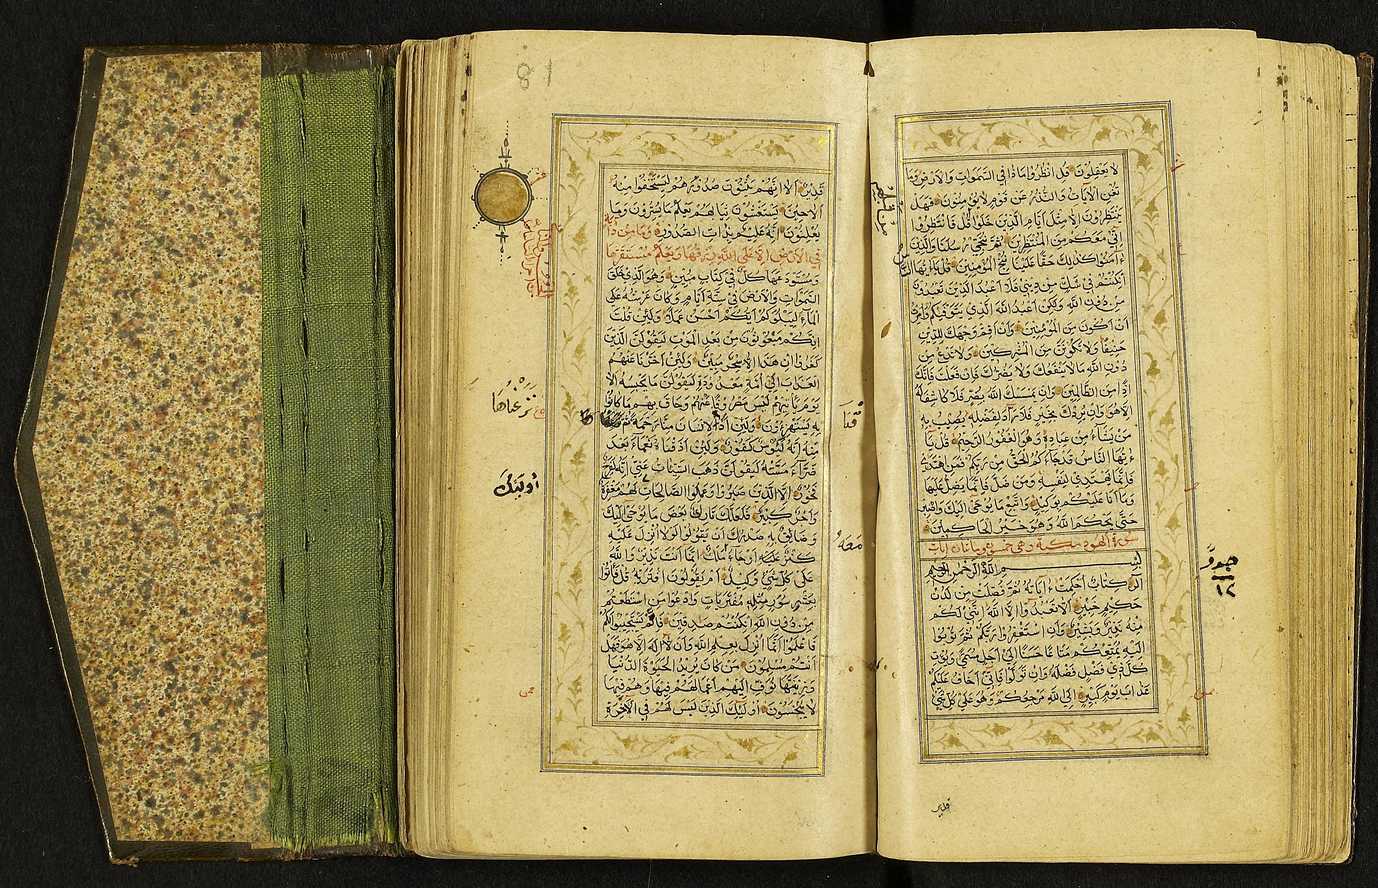 لا يعقلون قل انظروا ماذا في السموات والارض وما
تغن الايات والنذر عن قوم لا يؤمنون فهل
ينتظرون الا مثل ايام الذين خلوا قل فانتظروا
اني معكم من المنتظرين ثم ننجي رسلنا والذين
ءامنوا كذلك حقا علينا ننج المؤمنين قل ياايها
الناس
ان كنتم في شك من ديني فلا اعبد الذين تعبدون
من دون الله ولكن اعبد الله الذي يتوفيكم وامرت
ان اكون من المؤمنين وان اقم وجهك للدين
حنيفا ولا تكونن من المشركين ولا تدع من
دون الله ما لا ينفعك ولا يضرك فان فعلت فانك
اذا من الظالمين وان يمسسك الله بضر فلا كاشف له
الا هو وان يردك بخير فلا راد لفضله يصيب به
من يشاء من عباده وهو الغفور الرحيم قل يا
ءيها الناس قد جاءكم الحق من ربكم فمن اهتدى
فانما يهتدي لنفسه ومن ضل فانما يضل عليها
وما انا عليكم بوكيل واتبع ما يوحى اليك واصبر
حتى يحكم الله وهو خير الحاكمين
سورة الهود مكية وهي
بسم الله الرحمن الرحيم
الر كتاب احكمت ءاياته ثم فصلت من لدن
حكيم خبير الا تعبدوا الا الله انني لكم
منه نذير وبشير وان استغفروا ربكم ثم توبوا
اليه يمتعكم متاعا حسنا الى اجل مسمى ويؤت
كل ذي فضل فضله وان تولوا فاني اخاف عليكم
عذاب يوم كبير الى الله مرجعكم وهو على كل شئ
قدير
١٢
81
قدير الا انهم يثنون صدورهم ليستخفوا منه
الا حين يستغشون ثيابهم يعلم ما يسرون وما
يعلنون انه عليم بذات الصدور وما من دابة
في الارض الا على الله رزقها ويعلم مستقرها
ومستودعها كل في كتاب مبين وهو الذي خلق
السموات والارض في ستة ايام وكان عرشه على
الماء ليبلوكم ايكم احسن عملا ولئن قلت
انكم مبعوثون من بعد الموت ليقولن الذين
كفروا ان هذا الا سحر مبين ولئن اخرنا عنهم
العذاب الى امة معدودة ليقولن ما يحبسه الا
يوم ياتيهم ليس مصروفا عنهم وحاق بهم ما كانوا
به يستهزءون ولئن اذقنا الانسان منا رحمة ثم
نزعناها
منه انه ليؤس كفور ولئن اذقناه نعماء بعد
ضراء مسته ليقولن ذهب السيئات عني انه لفرح
فخور الا الذين صبروا وعملوا الصالحات لهم مغفرة
اولئك
واجر كبير فلعلك تارك بعض ما يوحى اليك
وضائق به صدرك ان يقولوا لولا انزل عليه
كنز او جاء ملك انما انت نذير والله
معه
على كل شئ وكيل ام يقولون افتريه قل فاتوا
بعشر سور مثله مفتريات وادعوا من استطعتم
من دون الله ان كنتم صدقين فالم يستجيبوا لكم
فاعلموا انما انزل بعلم الله وان لا اله الا هو فهل
انتم مسلمون من كان يريد الحيوة الدنيا
وزينتها نوف اليهم اعمالهم فيها وهم فيها
لا يبخسون اولئك الذين ليس لهم في الآخرة